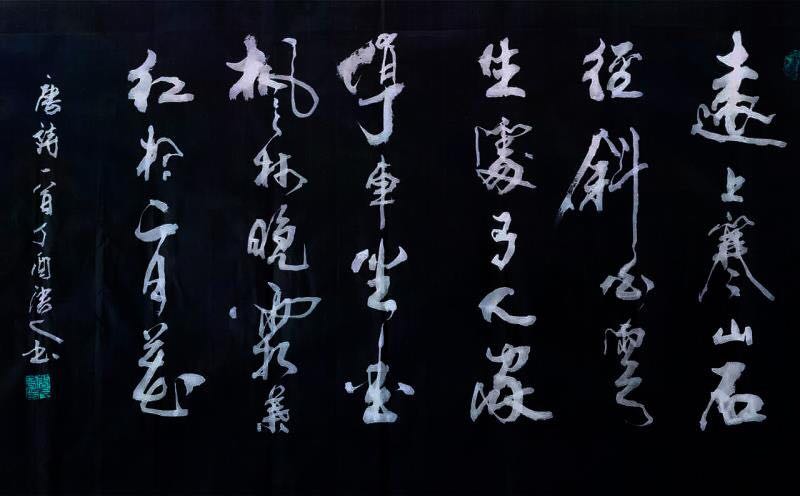 遠上寒山石
徑斜白雲
生處有人家
停車坐愛
楓林晚霜葉
紅於二月花
唐詩一首丁酉書